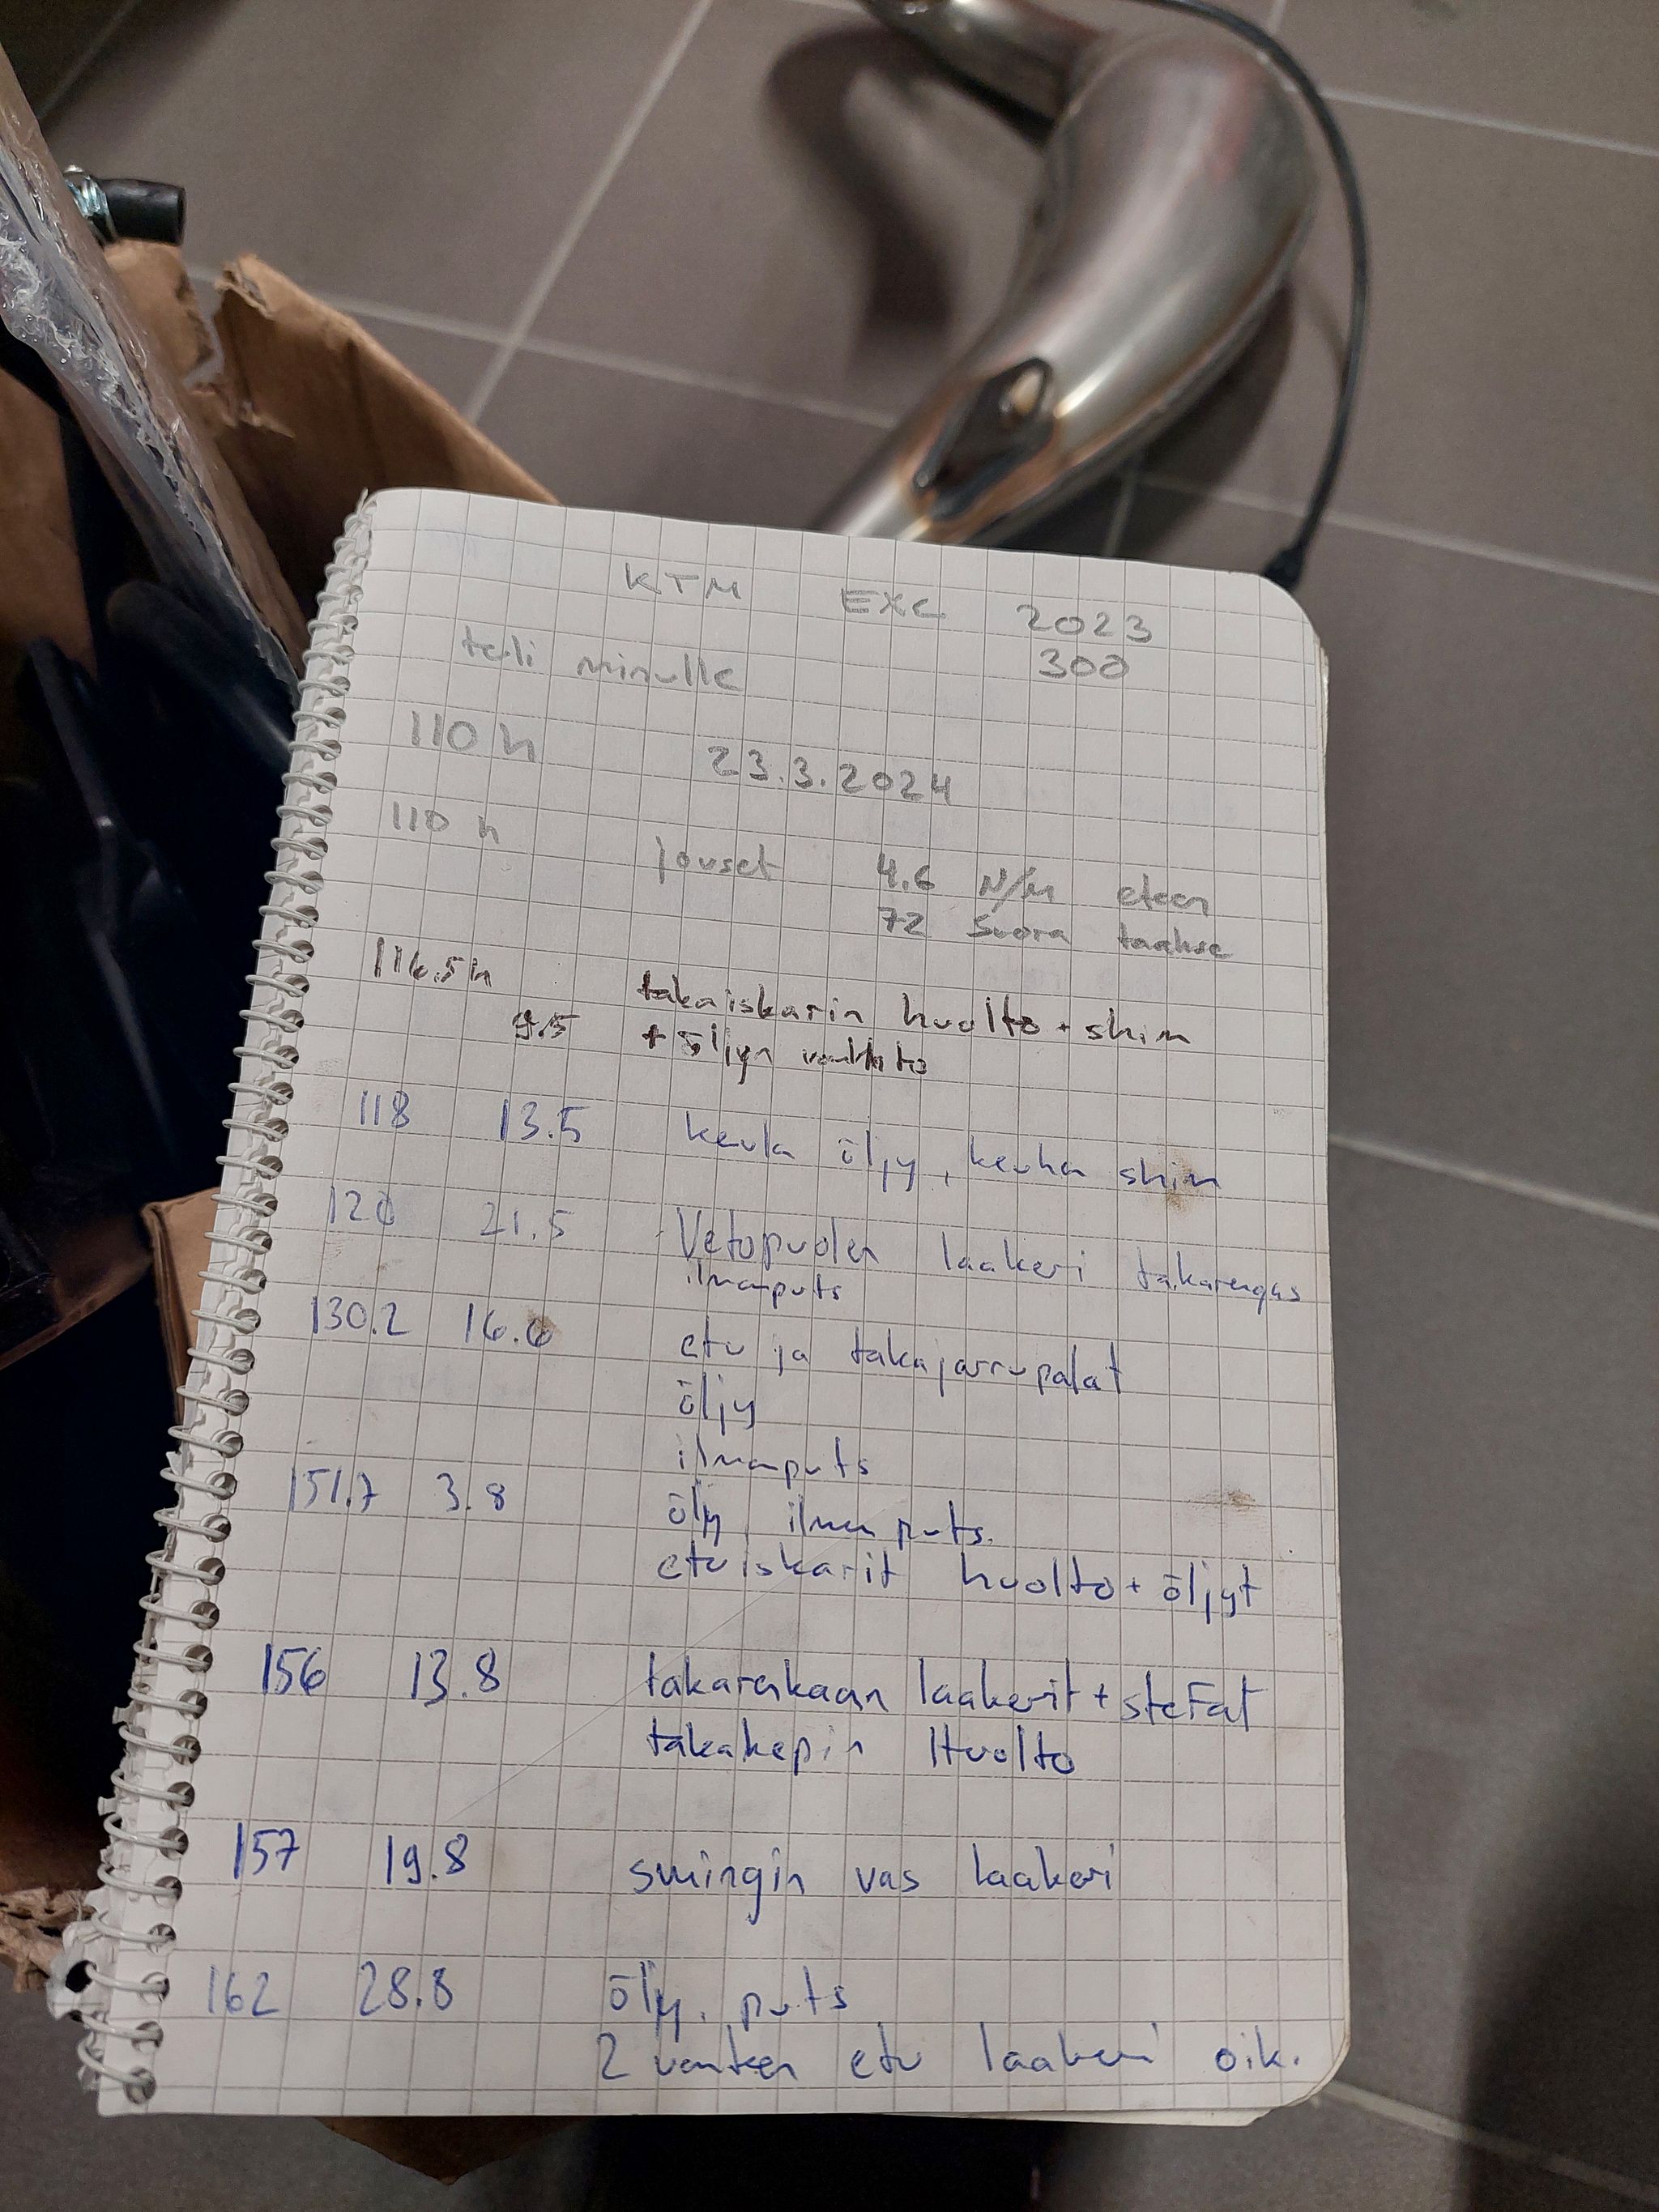 KTM EXC 2023
tuli minulle 300
110 h 23.3.2024
110 h jouset 4.6 N/m eteen
72 suora taakse
116.5h takaiskarin huolto + shim
9.5 + öljyn vaihto
118 13.5 keula öljy, keulan shim
120 21.5 Vetopuolen laakeri takarengas
ilmanputs
130.2 16.6 etu ja takajarrupalat
öljy
ilmanputs
151.7 3.8 öljy, ilman puts.
etuiskarit huolto + öljyt
156 13.8 takarenkaan laakerit + steFat
takakepin Huolto
157 19.8 swingin vas laakeri
162 28.8 öljy. puts
2 vanteen etu laakeri oik.